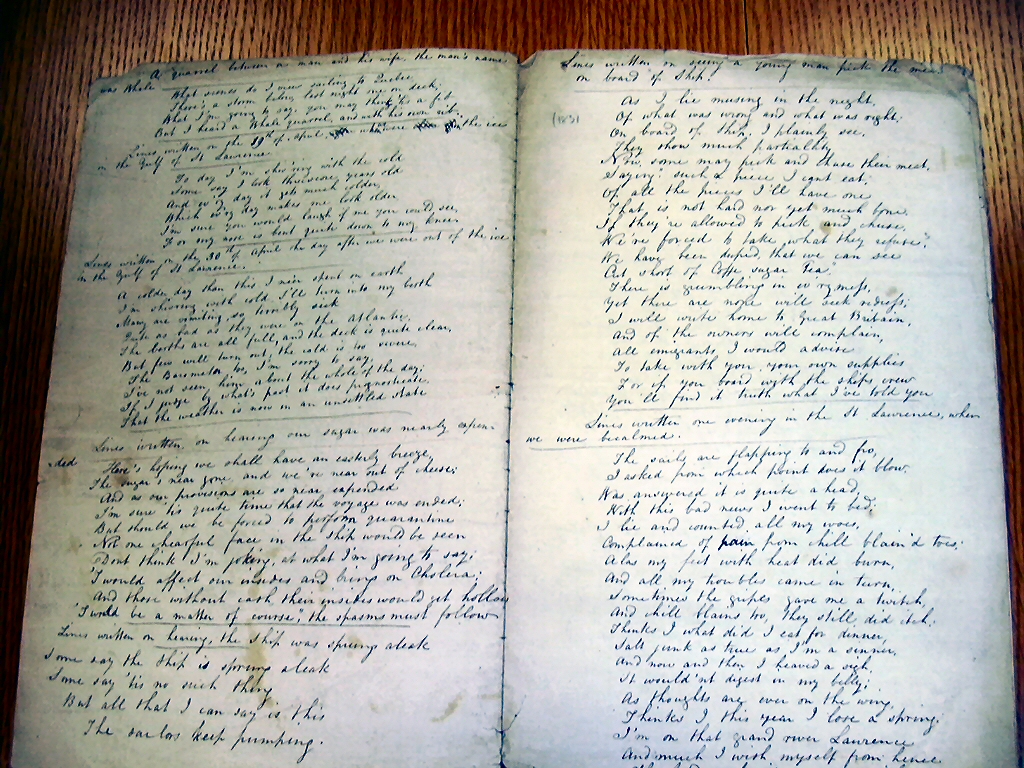 A quarrel between a man and his wife, the man's name
was Whale
What scenes do I view sailing to Quebec,
There's a storm below, last night me on deck;
What I'm going to say, you may think is a fit
But I heard a Whale quarrel, and with his own wife;
Lines written on the 29th of April, when we were in the ice
in the Gulf of St Lawrence
To day I'm shivering with the cold
Some say I look threescore years old
And ev'ry day it gets much colder,
Which ev'ry day makes me look older
I'm sure you would laugh if me you could see,
For my nose is bent quite down to my knee.
Lines written on the 30th of April the day after we were out of the ice
in the Gulf of St Lawrence.
A colder day than this I ne'er spent on earth
I'm shivering with cold I'll turn into my berth
Many are vomiting, so terribly sick
Quite as bad as they were on the Atlantic,
The berths are all full, and the deck is quite clear,
But few will turn out, the cold is so severe
The Barometer, too, I'm sorry to say,
I've not seen, higher about the whole of the day;
If I judge by what's past it does prognosticate
That the weather is now in an unsettled state
Lines written, on hearing our sugar was nearly expen
ded
Here's hoping we shall have an easterly breeze,
The sugar's near gone and we're near out of cheese;
And as our provisions are so near expended
I'm sure 'tis quite time that the voyage was ended;
But should we be forced to perform quarantine
Not one chearful face in the ship would be seen
Don't think I'm joking, at what I'm going to say;
T'would affect our insides and bring on Cholera;
And those without cash, their insides would get hollow
T'would be a matter of course; the spasms must follow
Lines written on hearing, the ship was sprung aleak
Some say the ship is sprung aleak
Some say 'tis no such thing
But all that I can say is this
The sailors keep pumping.
Lines written on seeing a young man pick the meat
on board of Ship.
(183)
As I lie musing in the night,
Of what was wrong and what was right;
On board of ship, I plainly see,
They show much partiality
Now, some may pick and chuse their meat,
Saying such a piece I can't eat;
Of all the pieces I'll have one
That is not hard nor yet much bone,
If they're allowed to pick and chuse,
We're forced to take, what they refuse;
We have been duped, that we can see
Cut short of Coffe sugar tea.
There is grumbling in ev'ry mess,
Yet there are none will seek redress;
I will write home to Great Britain,
And of the owners will complain,
All emigrants, I would advise
To take with you your own supplies
For if you board with the ships crew
You'll find it truth what I've told you
Lines written one evening in the St Lawrence, when
we were becalmed.
The sails are flapping to and fro,
I asked from which point does it blow.
Was answered it is quite a head,
With this bad news I went to bed;
I lie and counted all my woes,
Complained of pain from chill blain'd toes;
Alas my feet with heat did burn,
And all my troubles came in turn,
Sometimes the gripes gave me a twitch,
And chill blains too, they still did itch;
Thinks I what did I eat for dinner,
Salt junk as true as I'm a sinner,
And now and then I heaved a sigh,
It would'nt digest in my belly;
As thoughts are ever on the wing,
Thinks I this year I lose a spring;
I'm on that grand river Lawrence
And much I wish myself from hence